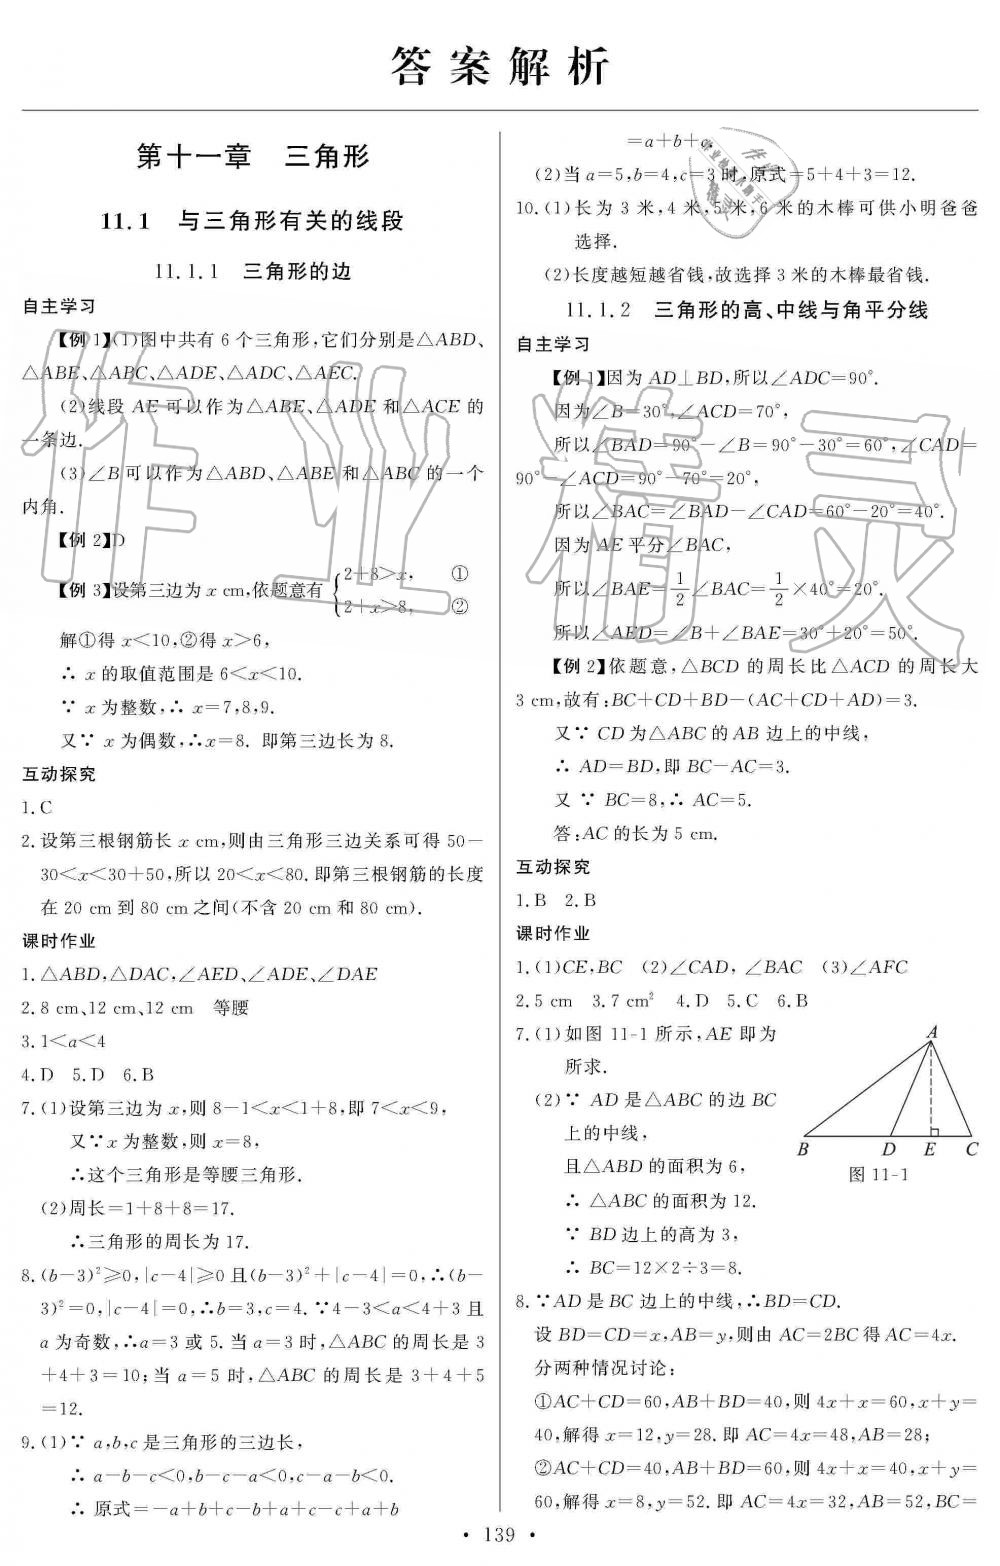 答案解析
第十一章 三角形
11.1 与三角形有关的线段
11.1.1 三角形的边
自主学习
【例 1】(1)图中共有 6 个三角形,它们分别是△ABD、
△ABE、△ABC、△ADE、△ADC、△AEC.
(2)线段 AE 可以作为△ABE、△ADE 和△ACE 的
一条边.
(3)∠B 可以作为△ABD、△ABE 和△ABC 的一个
内角.
【例 2】D
【例 3】设第三边为 x cm,依题意有 {2+8>x, ①
2+x>8, ②
解①得 x<10,②得 x>6,
∴ x 的取值范围是 6<x<10.
∵ x 为整数,∴ x=7,8,9.
又∵ x 为偶数,∴x=8. 即第三边长为 8.
互动探究
1. C
2. 设第三根钢筋长 x cm,则由三角形三边关系可得 50-
30<x<30+50,所以 20<x<80. 即第三根钢筋的长度
在 20 cm 到 80 cm 之间(不含 20 cm 和 80 cm).
课时作业
1. △ABD,△DAC,∠AED、∠ADE、∠DAE
2. 8 cm、12 cm、12 cm 等腰
3. 1<a<4
4. D 5. D 6. B
7. (1)设第三边为 x,则 8-1<x<1+8,即 7<x<9,
又∵x 为整数,则 x=8,
∴这个三角形是等腰三角形.
(2)周长=1+8+8=17.
∴三角形的周长为 17.
8. (b-3)²≥0,|c-4|≥0 且(b-3)²+|c-4|=0,∴(b-
3)²=0,|c-4|=0,∴b=3,c=4. ∵4-3<a<4+3 且
a 为奇数,∴a=3 或 5. 当 a=3 时,△ABC 的周长是 3
+4+3=10;当 a=5 时,△ABC 的周长是 3+4+5
=12.
9. (1)∵ a,b,c 是三角形的三边长,
∴ a-b-c<0,b-c-a<0,c-a-b<0.
∴ 原式=-a+b+c-b+a+c-c+a+b
=a+b+c.
(2)当 a=5,b=4,c=3 时,原式=5+4+3=12.
10. (1)长为 3 米,4 米,5 米,6 米的木棒可供小明爸爸
选择.
(2)长度越短越省钱,故选择 3 米的木棒最省钱.
11.1.2 三角形的高、中线与角平分线
自主学习
【例 1】因为 AD⊥BD,所以∠ADC=90°.
因为∠B=30°,∠ACD=70°,
所以∠BAD=90°-∠B=90°-30°=60°,∠CAD=
90°-∠ACD=90°-70°=20°,
所以∠BAC=∠BAD-∠CAD=60°-20°=40°.
因为 AE 平分∠BAC,
所以∠BAE=1/2∠BAC=1/2×40°=20°.
所以∠AED=∠B+∠BAE=30°+20°=50°.
【例 2】依题意,△BCD 的周长比△ACD 的周长大
3 cm,故有:BC+CD+BD-(AC+CD+AD)=3.
又∵ CD 为△ABC 的 AB 边上的中线,
∴ AD=BD,即 BC-AC=3.
又 ∵ BC=8,∴ AC=5.
答:AC 的长为 5 cm.
互动探究
1. B 2. B
课时作业
1. (1)CE,BC (2)∠CAD, ∠BAC (3)∠AFC
2. 5 cm 3. 7 cm² 4. D 5. C 6. B
7. (1)如图 11-1 所示,AE 即为
所求.
(2)∵ AD 是△ABC 的边 BC
上的中线,
且△ABD 的面积为 6,
∴ △ABC 的面积为 12.
∵ BD 边上的高为 3,
∴ BC=12×2÷3=8.
A
B D E C
图 11-1
8. ∵AD 是 BC 边上的中线,∴BD=CD.
设 BD=CD=x,AB=y,则由 AC=2BC 得 AC=4x.
分两种情况讨论:
①AC+CD=60,AB+BD=40,则 4x+x=60,x+y=
40,解得 x=12,y=28. 即 AC=4x=48,AB=28;
②AC+CD=40,AB+BD=60,则 4x+x=40,x+y=
60,解得 x=8,y=52. 即 AC=4x=32,AB=52,BC=
• 139 •
作业精灵